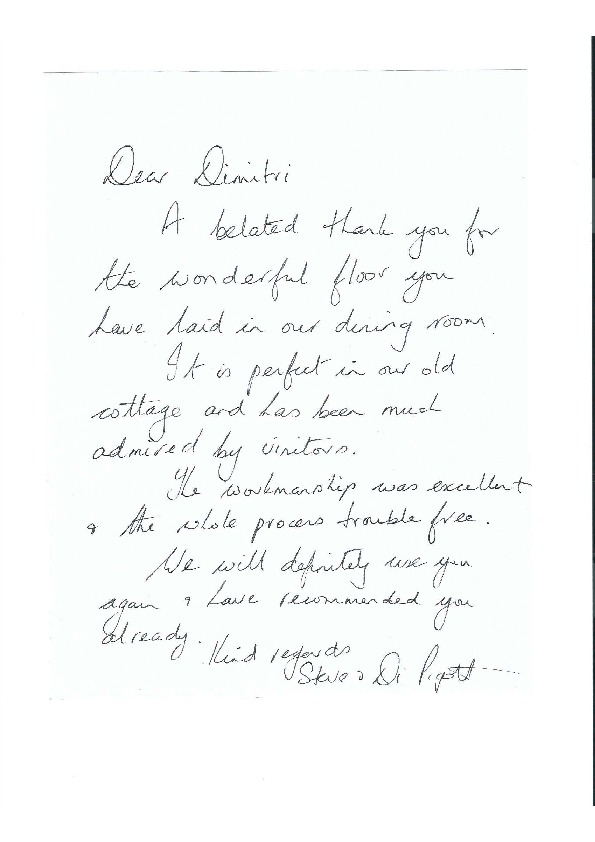 Dear Dimitri
A belated thank you for
the wonderful floor you
have laid in our dining room.
It is perfect in our old
cottage and has been much
admired by visitors.
The workmanship was excellent
& the whole process trouble free.
We will definitely use you
again & have recommended you
already.
Kind regards
Steve & Di